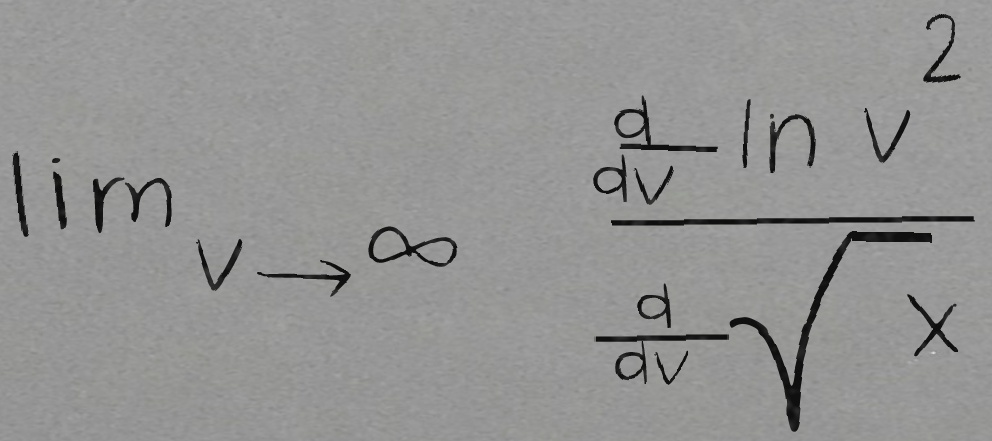 \lim_{v \to \infty} \frac{\frac{d}{dv} \ln v^2}{\frac{d}{dv} \sqrt{x}}